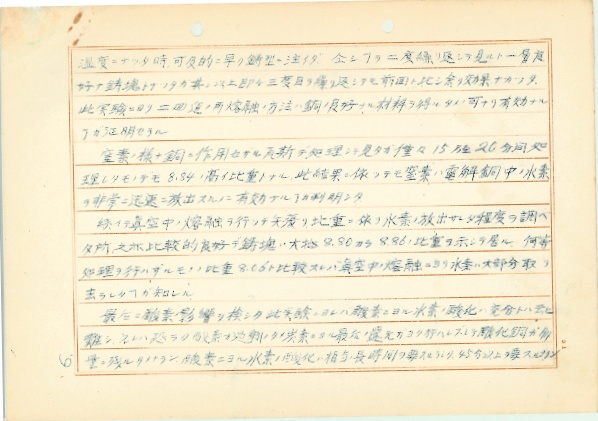 温度ニナツタ時、可及的ニ早ク鋳型ニ注イダ 今シアリ二度繰リ返シテ見ルト一層良
好ナ鋳塊トナツタガ其レ以上即チ三度目ヲ繰リ返シテモ前回ト比シ余リ効果ナカツタ
此実験ニヨリ二回迄ノ再熔融ノ方法ハ銅ノ良好ナル材料ヲ得ルタメ、可ナリ有効ナル
ヿガ証明セラル
窒素ノ様ナ銅ニ作用セザル瓦斯デ処理シテ見タガ僅々15乃至20分間処
理シタモノデモ8.54ノ高イ比重トナル、此結果ニ依ツテモ窒素ハ電解銅中ノ水素
ヲ非常ニ迅速ニ放出スルニ有効ナルヿガ判明シタ
続イテ真空中ノ熔融ヲ行ツテ矢張リ比重ニ依リ水素ノ放出サレタ程度ヲ調ベ
タ所、之亦比較的良好デ鋳塊ハ大抵8.80カラ8.86ノ比重ヲ示シテ居ル、何等
処理ヲ行ハザルモノノ比重8.06ト比較スレバ真空中ノ熔融ニヨリ水素ハ大部分取リ
去ラレタヿガ知レル
最后ニ酸素ノ影響ヲ検シタ此実験ニヨレバ酸素ニヨル水素ノ酸化ハ充分トハ云ヒ
難シ、 酸素 過剰 炭素ニヨル最后ノ還元 酸化銅ガ
ニ残ルタメナラン、酸素ニヨル水素ノ酸化ハ相当長時間ヲ要スルラシク、45分以上ヲ要スル
6